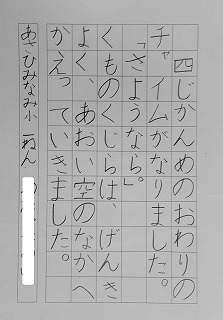 四じかんめのおわりの
チャイムがなりました。
「さようなら。」
くものくじらは、げんき
よく、あおい空のなかへ
かえっていきました。
あさひみなみ小 一ねん